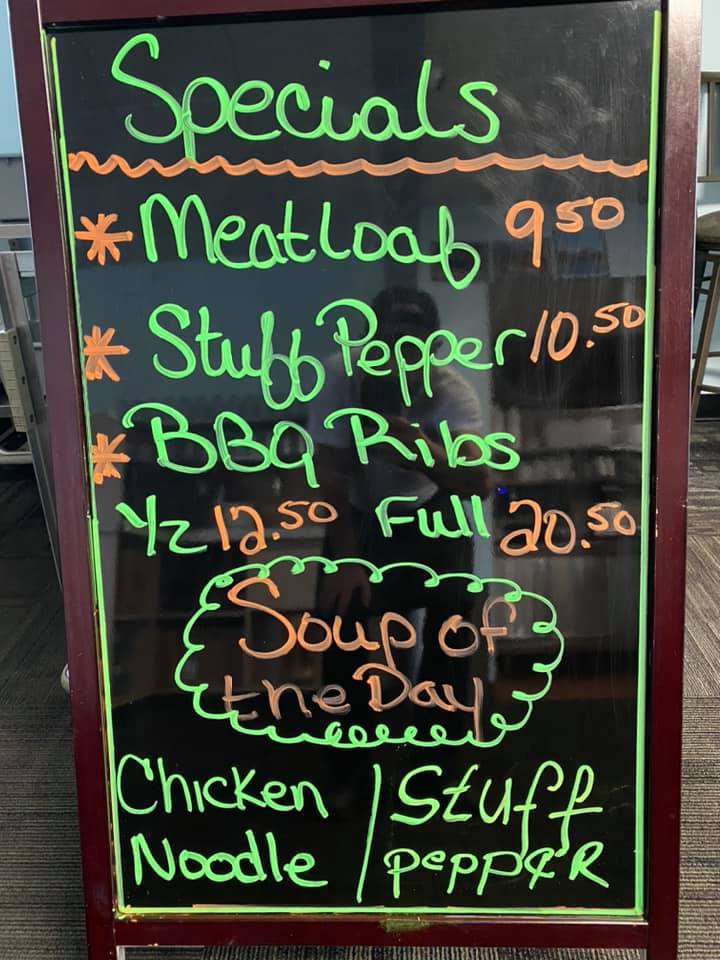 Specials
* Meatloaf 9 50
* Stuff Pepper 10.50
* BBQ Ribs
1/2 12.50 Full 20.50
Soup of
the Day
Chicken / Stuff
Noodle / pepper